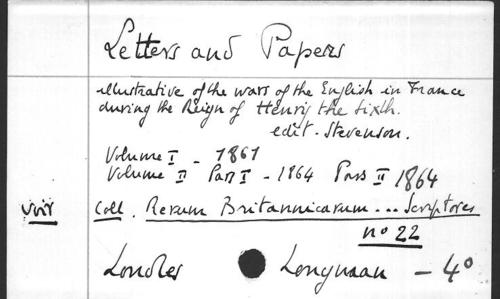 Letters and Papers
illustrative of the wars of the English in France
during the Reign of Henry the sixth.
edit. Stevenson.
Volume I - 1861
Volume II Part I - 1864 Pars II 1864
Voir Coll. Rerum Britannicarum ... Scriptores
no 22
Londres Longman - 4°